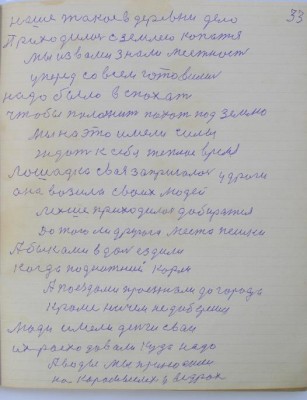 33
наше такое в деревни дело
Приходилос с землею копатя
мы из вами знали местност
уперод совсем готовили
надо было вспохат
чтобы положит пахат под землю
мы на это имели силы
ждат к себя теплые время
Лошадка своя запригалос у дроги
она возила своих людей
легше приходилос добиратя
до того ли другого места пешки
А быками в дол ездили
когда поднатний корм
А поездами проезжали до города
кроме ничем не добереш
Люди имели денги сваи
их расходовали куда надо
А воды мы приносили
на коромыслех у ведрах